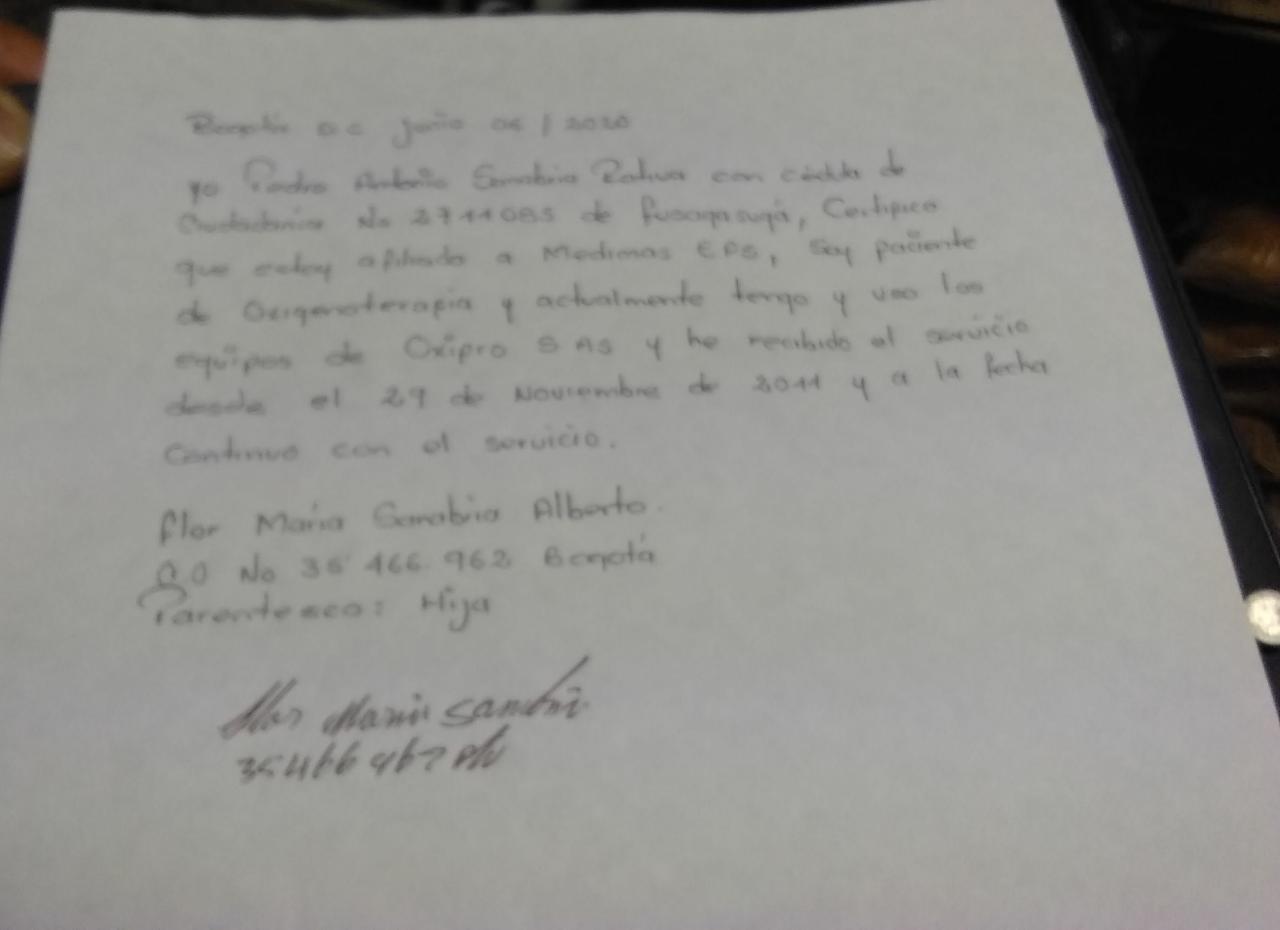 Bogotá D.C Junio 06 / 2020
yo Pedro Antonio Sanabria con cédula de
Ciudadania No 2711085 de Fusagasugá, Certifico
que estoy afiliado a Medimas EPS, Soy paciente
de Oxigenoterapia y actualmente tengo y uso los
equipos de Oxipro SAS y he recibido el servicio
desde el 29 de Noviembre de 2011 y a la fecha
Continuo con el servicio.
Flor Maria Sanabria Alberto.
CC No 35'466.962 Bogotá
Parentesco: Hija
Flor Maria Sanabria
35466962